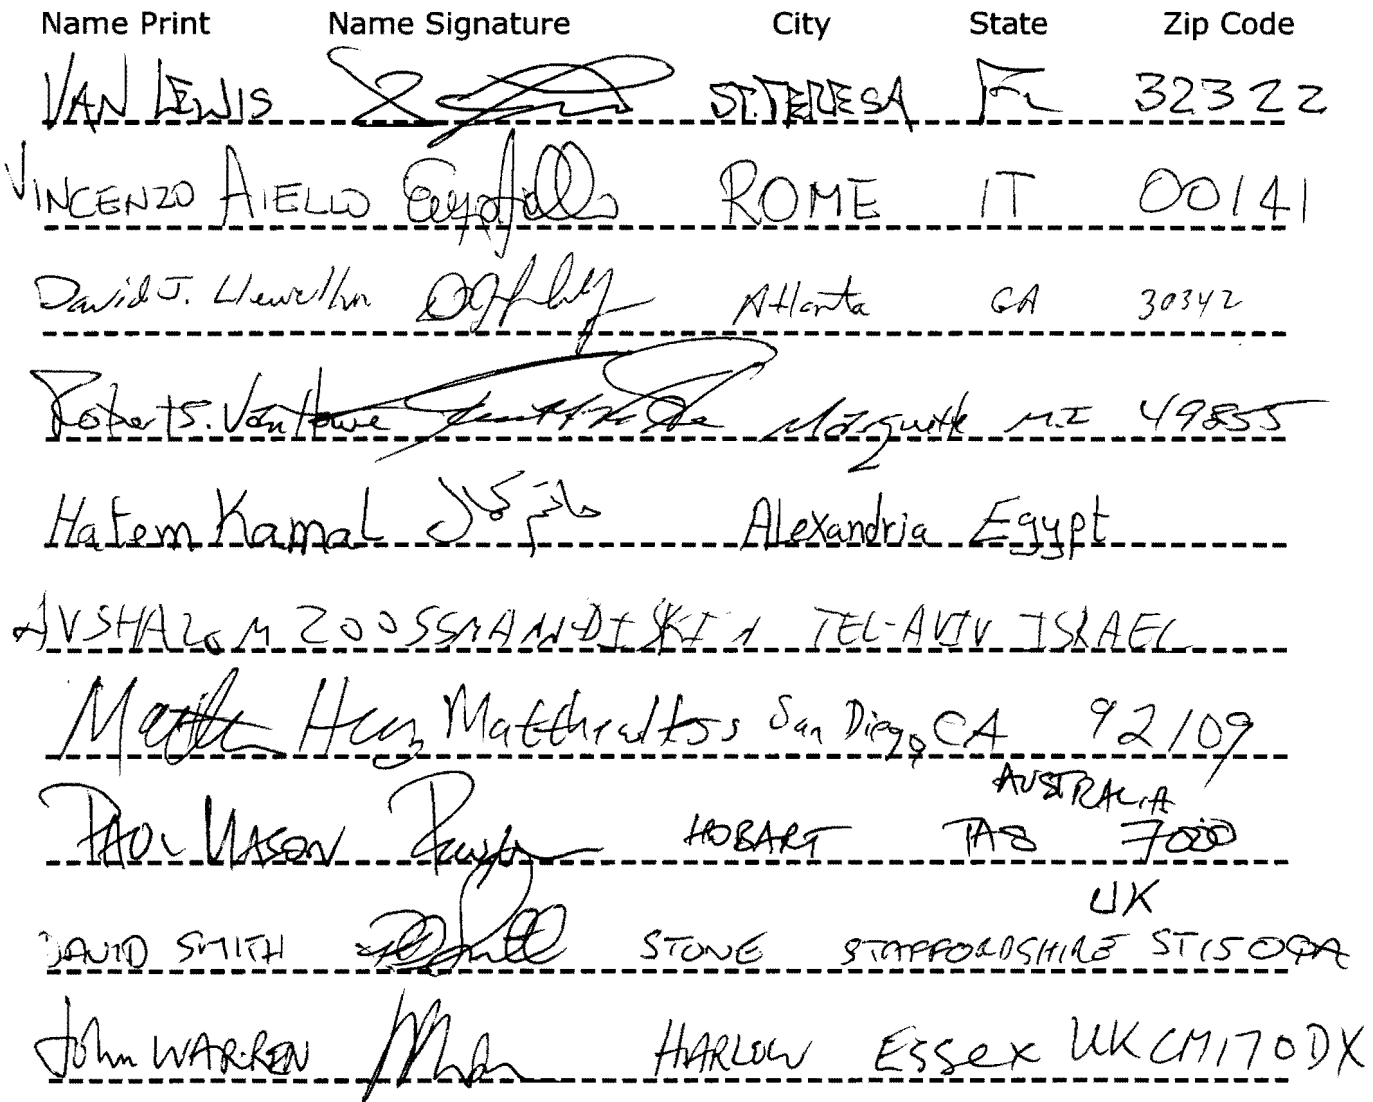 Name Print Name Signature City State Zip Code
VAN LEWIS ST. TERESA FL 32322
VINCENZO AIELLO ROME IT 00141
David J. Llewellyn Atlanta GA 30342
Robert S. Van Howe Marquette MI 49855
Hatem Kamal حاتم كمال Alexandria Egypt
AVSHALOM ZOOSSMANN-DISKIN TEL-AVIV ISRAEL
Matthew Hess San Diego, CA 92109
AUSTRALIA
PAUL MASON HOBART TAS 7000
UK
DAVID SMITH STONE STAFFORDSHIRE ST15 0QA
John WARREN HARLOW Essex UK CM17 0DX